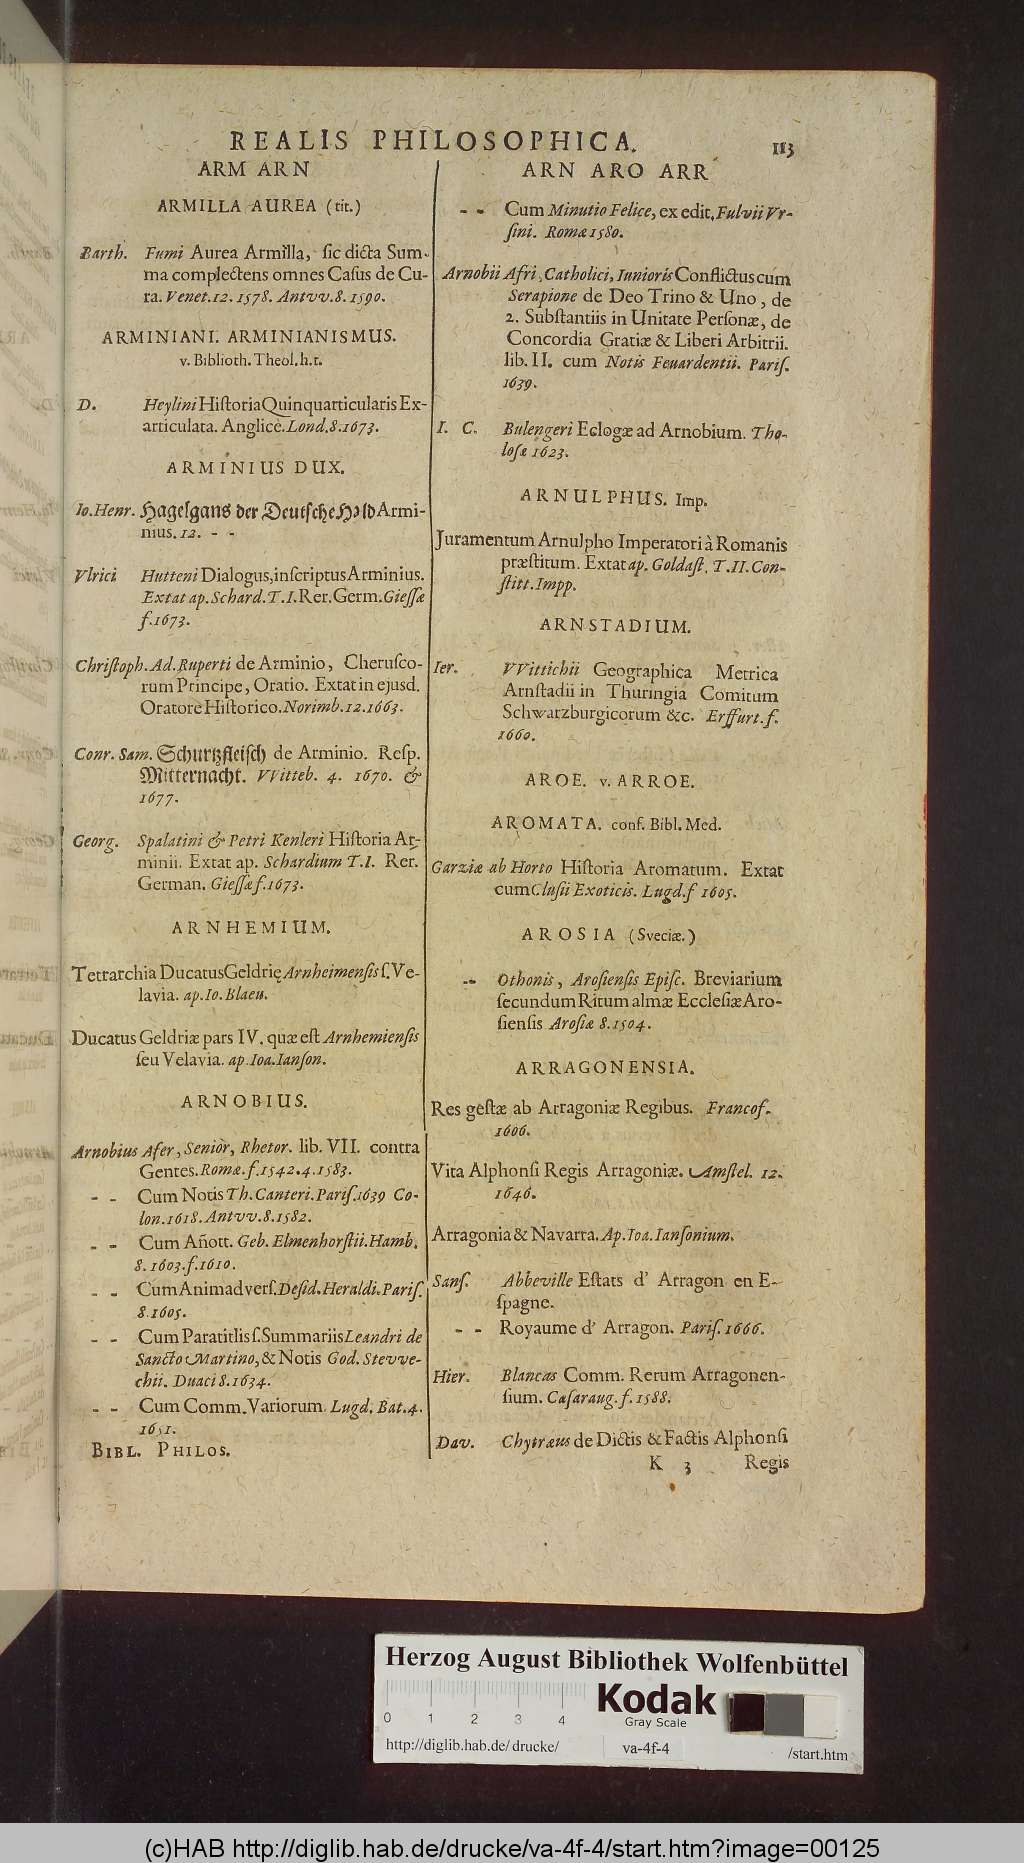 REALIS PHILOSOPHICA. 113
ARM ARN
ARMILLA AUREA (tit.)
Barth. Fumi Aurea Armilla, ſic dicta Sum-
ma complectens omnes Caſus de Cu-
ra. Venet. 12. 1578. Antvv. 8. 1590.
ARMINIANI. ARMINIANISMUS.
v. Biblioth. Theol. h. t.
D. Heylini Hiſtoria Quinquarticularis Ex-
articulata. Anglicè. Lond. 8. 1673.
ARMINIUS DUX.
Io. Henr. Hagelgans der Deutſche Held Armi-
nius. 12. - -
Vlrici Hutteni Dialogus, inſcriptus Arminius.
Extat ap. Schard. T. I. Rer. Germ. Gieſſæ
f. 1673.
Chriſtoph. Ad. Ruperti de Arminio, Cheruſco-
rum Principe, Oratio. Extat in ejusd.
Oratore Hiſtorico. Norimb. 12. 1663.
Conr. Sam. Schurtzfleiſch de Arminio. Reſp.
Mitternacht. VVitteb. 4. 1670. &
1677.
Georg. Spalatini & Petri Kenleri Hiſtoria Ar-
minii. Extat ap. Schardium T. I. Rer.
German. Gieſſæ f. 1673.
ARNHEMIUM.
Tetrarchia Ducatus Geldrię Arnheimenſis ſ. Ve-
lavia. ap. Io. Blaeu.
Ducatus Geldriæ pars IV. quæ eſt Arnhemienſis
ſeu Velavia. ap. Ioa. Ianſon.
ARNOBIUS.
Arnobius Afer, Seniòr, Rhetor. lib. VII. contra
Gentes. Romæ. f. 1542. 4. 1583.
- - Cum Notis Th. Canteri. Pariſ. 1639 Co-
lon. 1618. Antvv. 8. 1582.
- - Cum Añott. Geb. Elmenhorſtii. Hamb.
8. 1603. f. 1610.
- - Cum Animadverſ. Deſid. Heraldi. Pariſ.
8. 1605.
- - Cum Paratitlis ſ. Summariis Leandri de
Sancto Martino, & Notis God. Stevve-
chii. Duaci 8. 1634.
- - Cum Comm. Variorum. Lugd. Bat. 4.
1651.
BIBL. PHILOS.
ARN ARO ARR
- - Cum Minutio Felice, ex edit. Fulvii Vr-
ſini. Romæ 1580.
Arnobii Afri, Catholici, Iunioris Conflictus cum
Serapione de Deo Trino & Uno, de
2. Subſtantiis in Unitate Perſonæ, de
Concordia Gratiæ & Liberi Arbitrii.
lib. II. cum Notis Feuardentii. Pariſ.
1639.
I. C. Bulengeri Eclogæ ad Arnobium. Tho-
loſæ 1623.
ARNULPHUS. Imp.
Juramentum Arnulpho Imperatori à Romanis
præſtitum. Extat ap. Goldaſt. T. II. Con-
ſtitt. Impp.
ARNSTADIUM.
Ier. VVittichii Geographica Metrica
Arnſtadii in Thuringia Comitum
Schwartzburgicorum &c. Erffurt. f.
1660.
AROE. v. ARROE.
AROMATA. conf. Bibl. Med.
Garziæ ab Horto Hiſtoria Aromatum. Extat
cum Cluſii Exoticis. Lugd. f 1605.
AROSIA (Sveciæ.)
-- Othonis, Aroſienſis Epiſc. Breviarium
ſecundum Ritum almæ Eccleſiæ Aro-
ſienſis Aroſiæ 8. 1504.
ARRAGONENSIA.
Res geſtæ ab Arragoniæ Regibus. Francof.
1606.
Vita Alphonſi Regis Arragoniæ. Amſtel. 12.
1646.
Arragonia & Navarra. Ap. Ioa. Ianſonium.
Sanſ. Abbeville Eſtats d' Arragon en E-
ſpagne.
- - Royaume d' Arragon. Pariſ. 1666.
Hier. Blancas Comm. Rerum Arragonen-
ſium. Cæſaraug. f. 1588.
Dav. Chytræus de Dictis & Factis Alphonſi
K 3 Regis
Herzog August Bibliothek Wolfenbüttel
0 1 2 3 4
Kodak
Gray Scale
http://diglib.hab.de/drucke/ va-4f-4 /start.htm
(c)HAB http://diglib.hab.de/drucke/va-4f-4/start.htm?image=00125